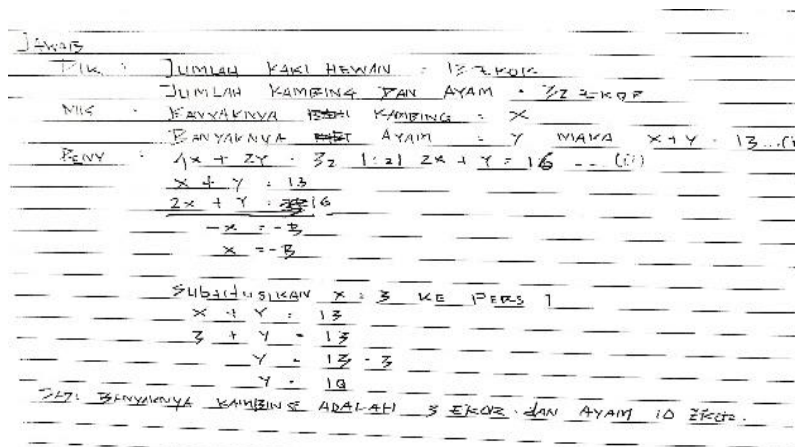 JAWAB
DIK : JUMLAH KAKI HEWAN = 13 EKOR
JUMLAH KAMBING DAN AYAM = 32 EKOR
MIS : BANYAKNYA KAMBING = X
BANYAKNYA AYAM = Y MAKA X + Y = 13 ...(i
PENY : 4x + 2Y = 32 |:2| 2x + Y = 16 --- (ii)
X + Y = 13
2x + Y = 16
-x = -3
x = -3
SUBSTITUSIKAN X = 3 KE PERS 1
X + Y = 13
3 + Y = 13
Y = 13 - 3
Y = 10
BANYAKNYA KAMBING ADALAH 3 EKOR dAN AYAM 10 EKOR.